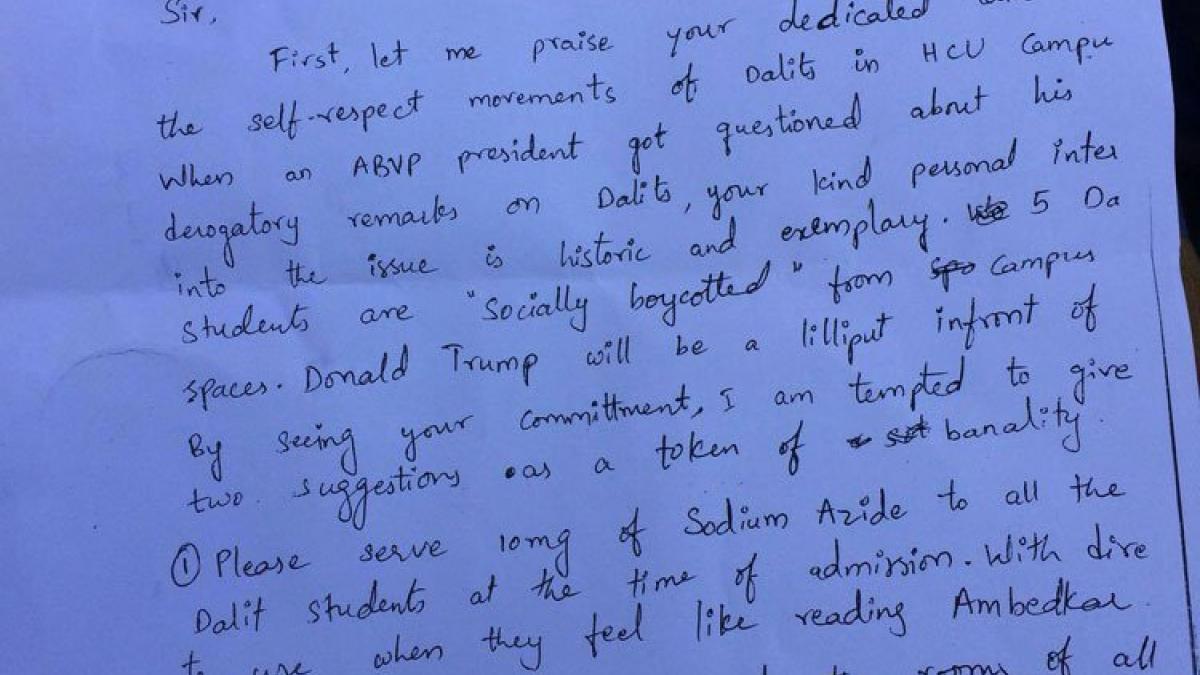 Sir,
First, let me praise your dedicaled
the self-respect movements of Dalits in HCU Campu
When an ABVP president got questioned about his
derogatory remarks on Dalits, your kind personal inter
into the issue is historic and exemplary. 5 Da
students are "Socially boycotted" from Campus
spaces. Donald Trump will be a lilliput infront of
By seeing your Committment, I am tempted to give
two suggestions as a token of banality.
① Please serve 10mg of Sodium Azide to all the
Dalit students at the time of admission. With dire
when they feel like reading Ambedkar
rooms of all